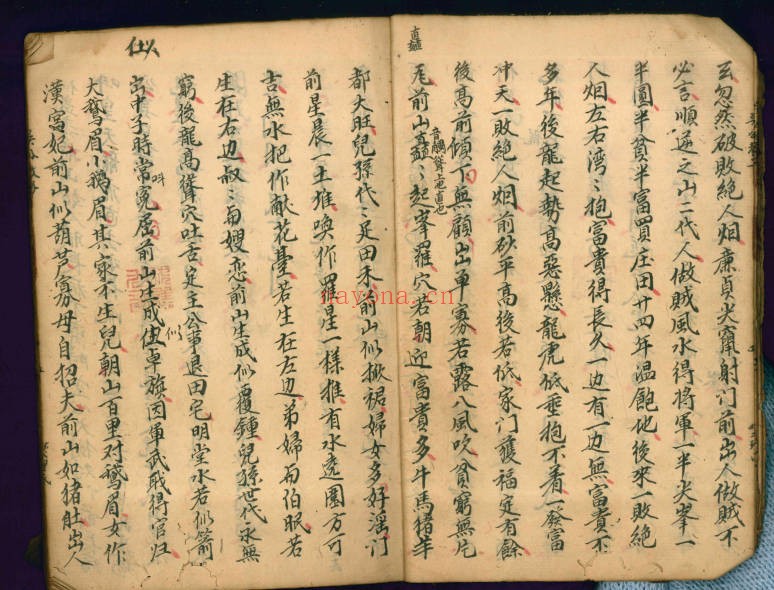 玄忽然破敗絕人烟廉貞尖射门前出人做賊不
必言順遂之山二代人做賊風水得將軍一半尖峯一
半圓半貧半富買庄田廿四年温飽他後來一敗絕
人烟左右湾〻抱富貴得長久一边有一边無富貴不
多年後龍起势高惡懸龍虎低垂抱不着一發富
冲天一敗絕人烟前砂平高後若低家门獲福定有餘
後高前傾下無顧出单寡若露八風吹貧窮無片
瓦前山矗〻起峯羅穴若朝迎富貴多牛馬猪羊
直也
矗
都大旺兒孫代〻足田禾前山似掀裙婦女多好滛门
前星晨一土堆喚作羅星一樣推有水遶圓方可
吉無水把作献花臺若生在左边弟婦与伯眠若
生在右边叔〻与嫂恋前山生成似覆鍾兒孫世代永無
窮後龍高聳穴吐舌定主公事退田宅明堂水若似箭
出中子時常冤屈前山生成伍卓旗因軍武职得官归
似
大鵝眉小鵝眉其家不生兒朝山百里对鵝眉女作
漢宫妃前山似葫芦寡母自招夫前山如猪肚出人
似
nayona.cn